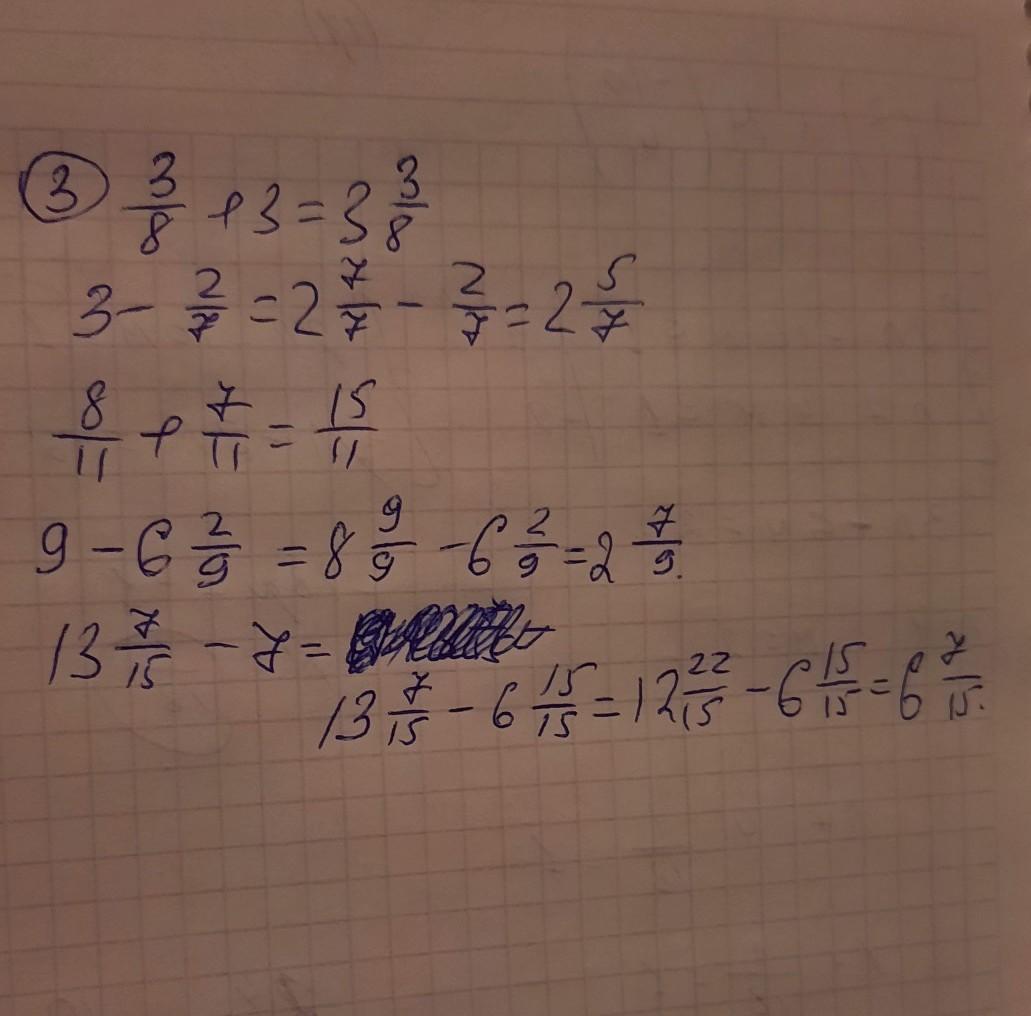 ③ 3/8 + 3 = 3 3/8
3 - 2/7 = 2 7/7 - 2/7 = 2 5/7
8/11 + 7/11 = 15/11
9 - 6 2/9 = 8 9/9 - 6 2/9 = 2 7/9.
13 7/15 - 7 =
13 7/15 - 6 15/15 = 12 22/15 - 6 15/15 = 6 7/15.